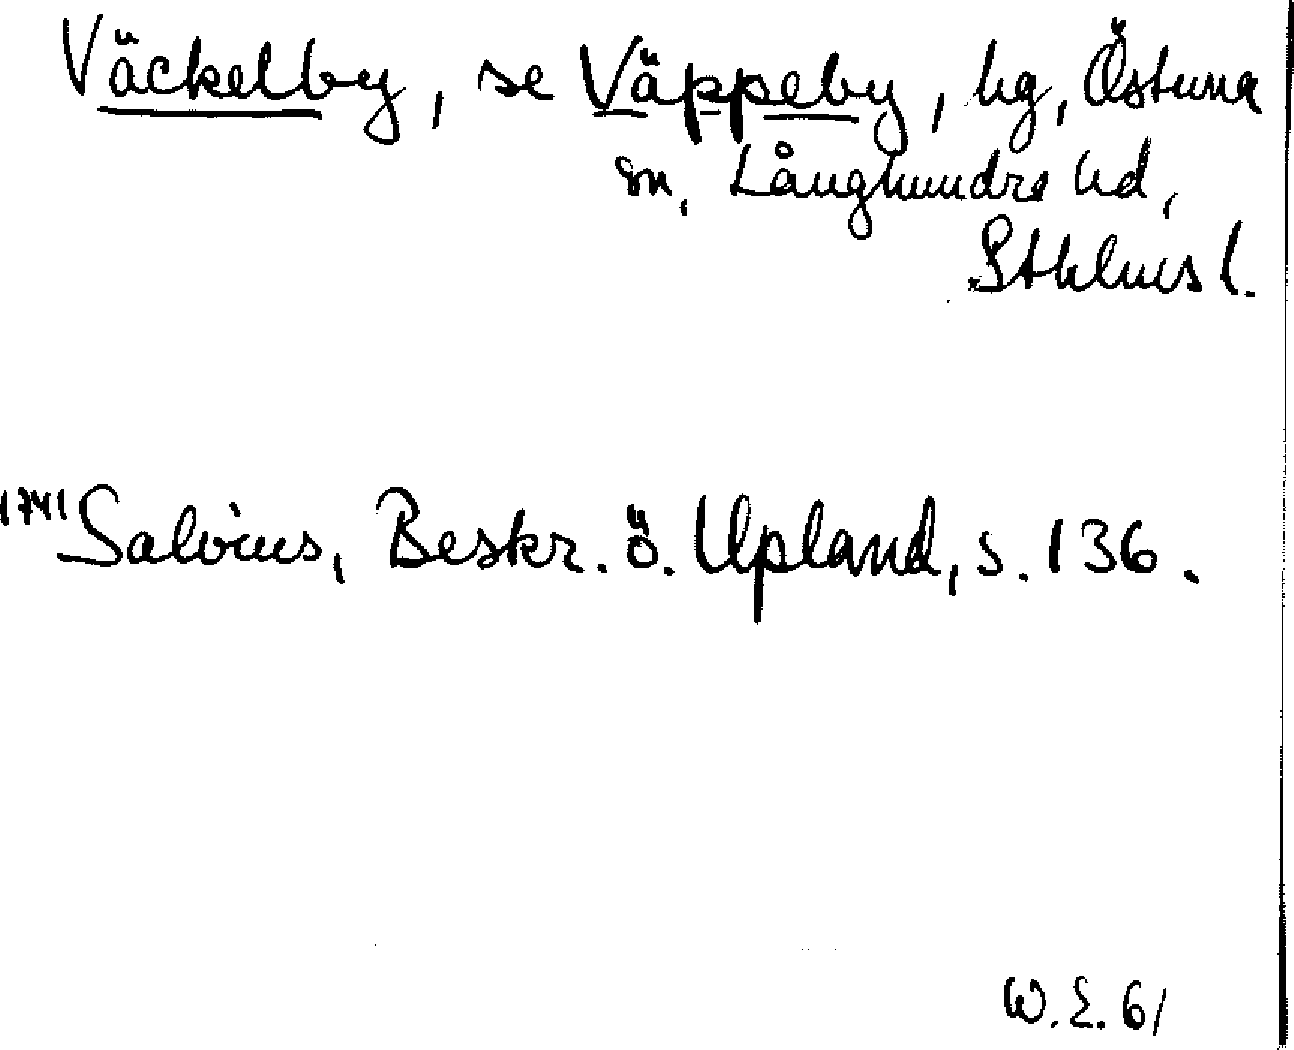 Väckelby, se Väppeby, hg, Östuna
sn, Långhundra hd,
Sthlms l.
1741 Salvius, Beskr. ö. Upland, s. 136.
W.E. 61